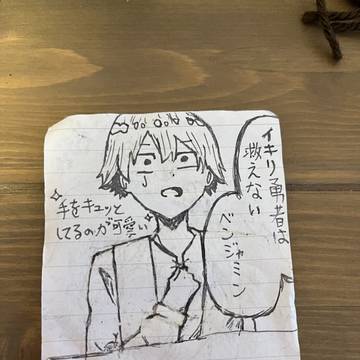 イキり勇者は
救えない
ベンジャミン
手をキュッと
してるのが可愛い